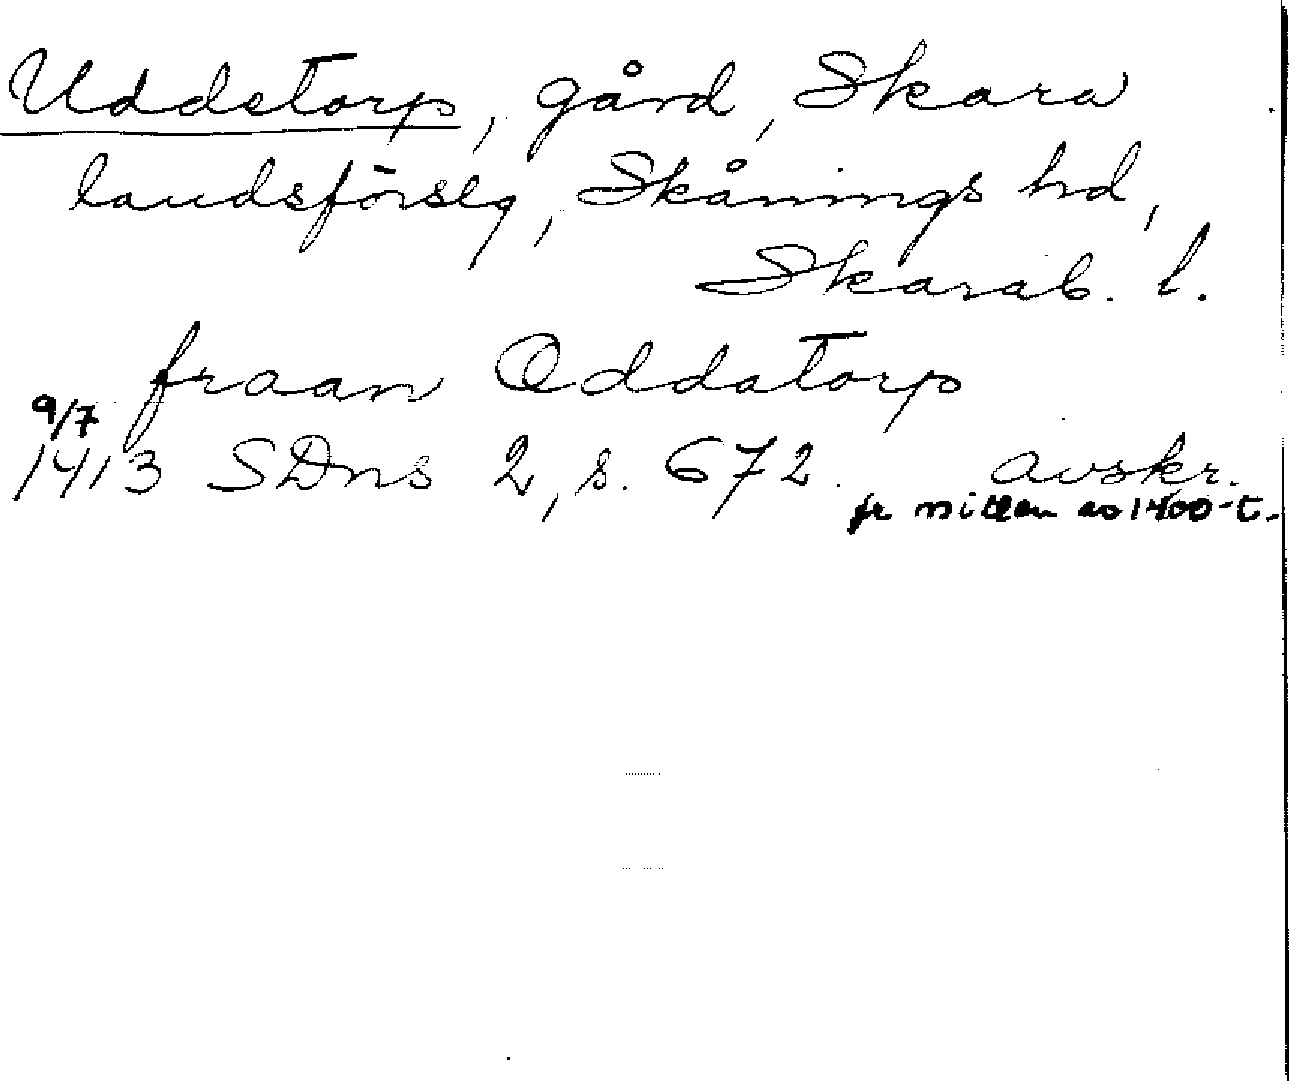 Uddetorp, gård, Skara
landsförslg, Skånings hd,
Skarab. l.
fraan Oddatorp
9/7
1413 SDns 2, s. 672. avskr.
fr mitten av 1400-t.